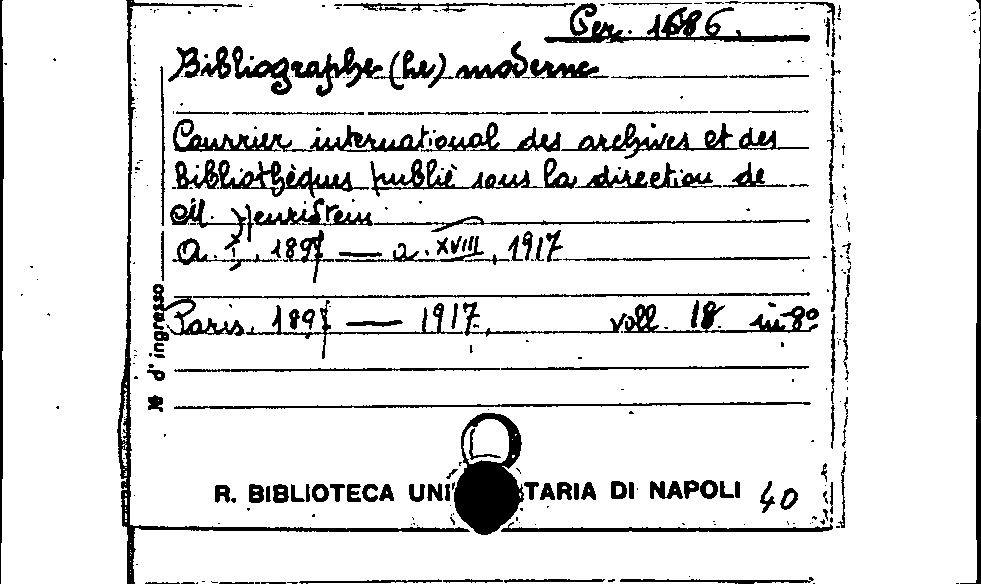 Per. 1686.
Bibliographe (Le) moderne
Courrier international des archives et des
Bibliothèques publié sous la direction de
M. Henri Stein
a. I, 1897 — a. XVIII, 1917
Paris. 1897 — 1917. voll. 18 in-8º
№ d'ingresso
R. BIBLIOTECA UNI TARIA DI NAPOLI 40